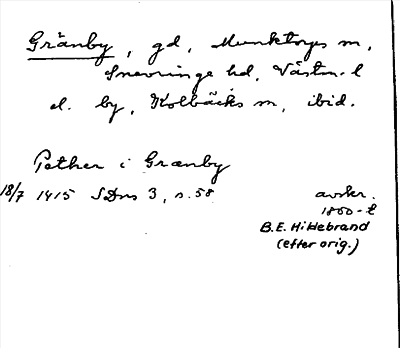 Gränby, gd, Munktorps sn,
Snevringe hd, Västm. l
el. by, Kolbäcks sn, ibid.
Pether i Grænby
18/7 1415 SDns 3, s. 58 avskr.
1800-t
B.E. Hildebrand
(efter orig.)